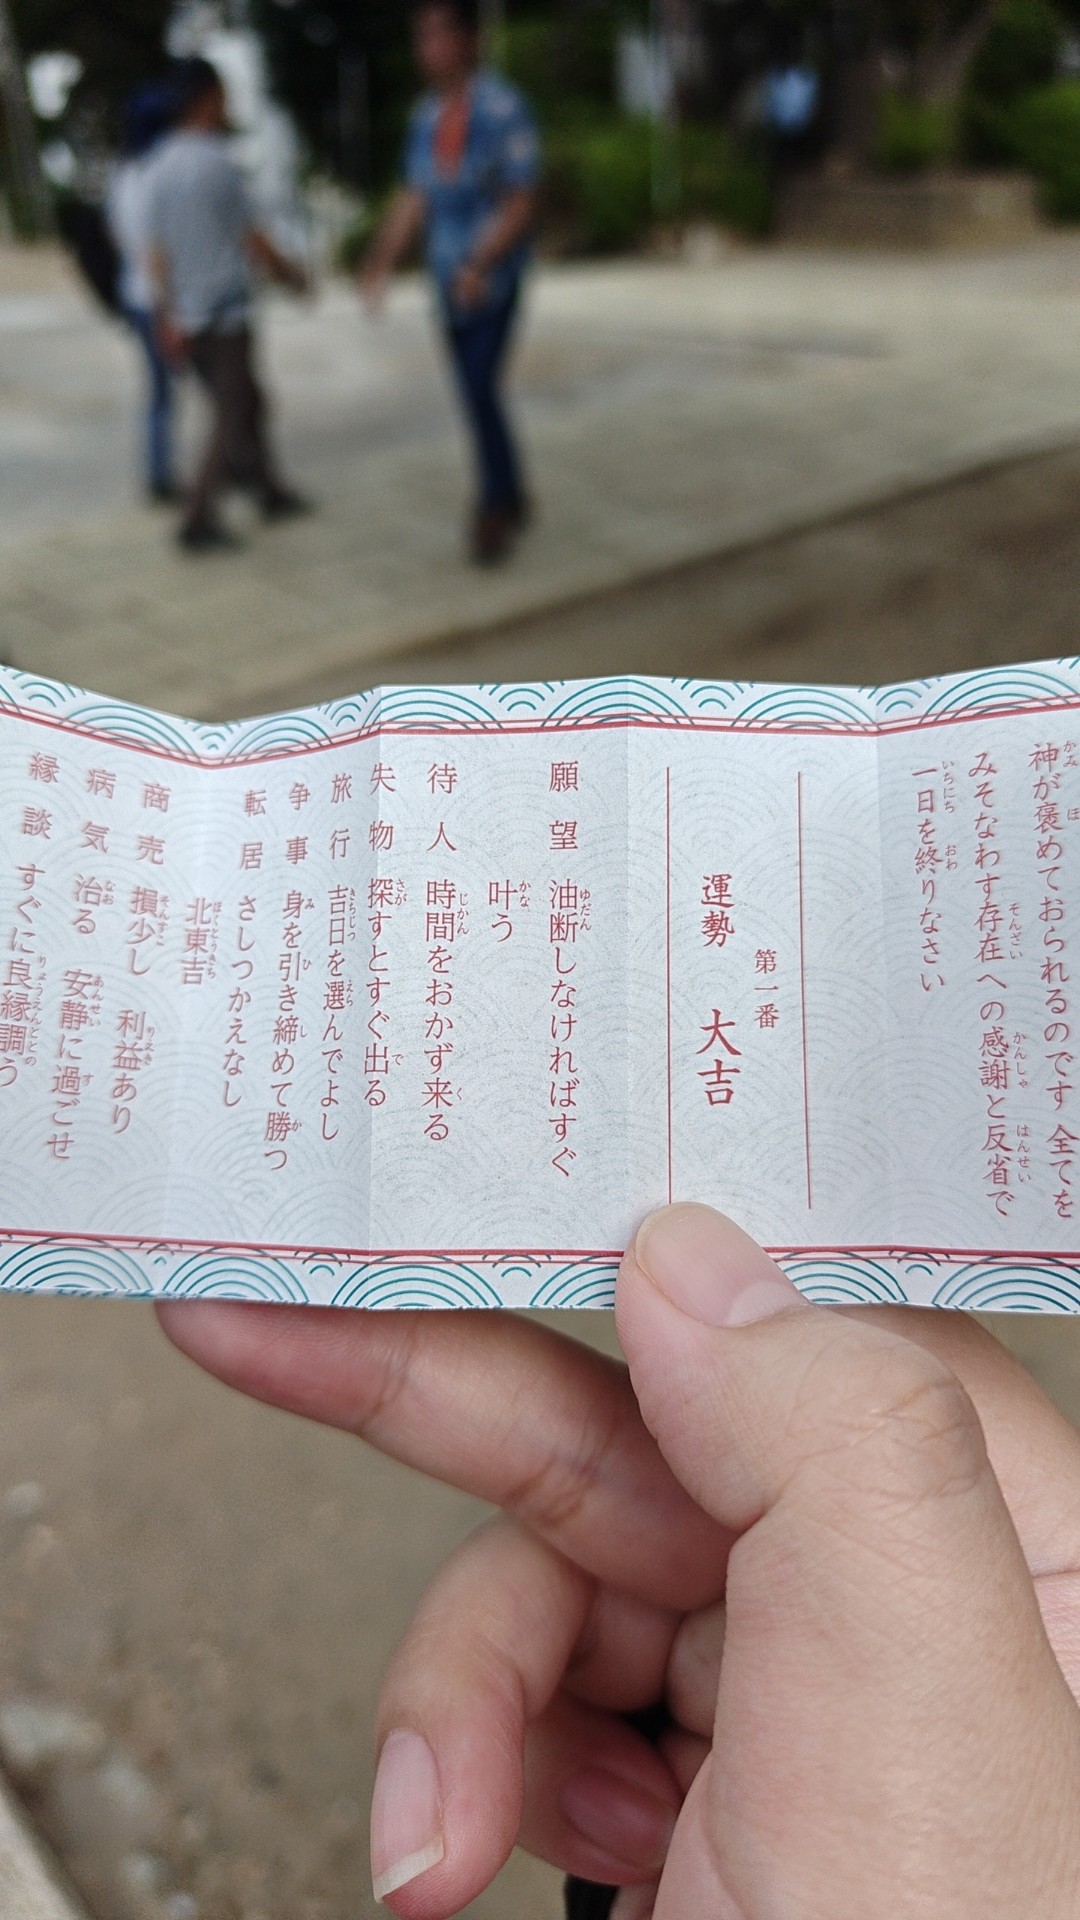 神が褒めておられるのです 全てを
みそなわす存在への感謝と反省で
一日を終りなさい
第一番
運勢 大吉
願望 油断しなければすぐ
叶う
待人 時間をおかず来る
失物 探すとすぐ出る
旅行 吉日を選んでよし
争事 身を引き締めて勝つ
転居 さしつかえなし
北東吉
商売 損少し 利益あり
病気 治る 安静に過ごせ
縁談 すぐに良縁調う